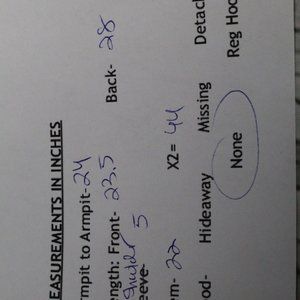 EASUREMENTS IN INCHES
rmpit to Armpit-24
ength: Front- 23.5 Back- 28
eeve- Shulder 5
em- 22 X2= 44
od- Hideaway Missing Detac
None Reg Hoo